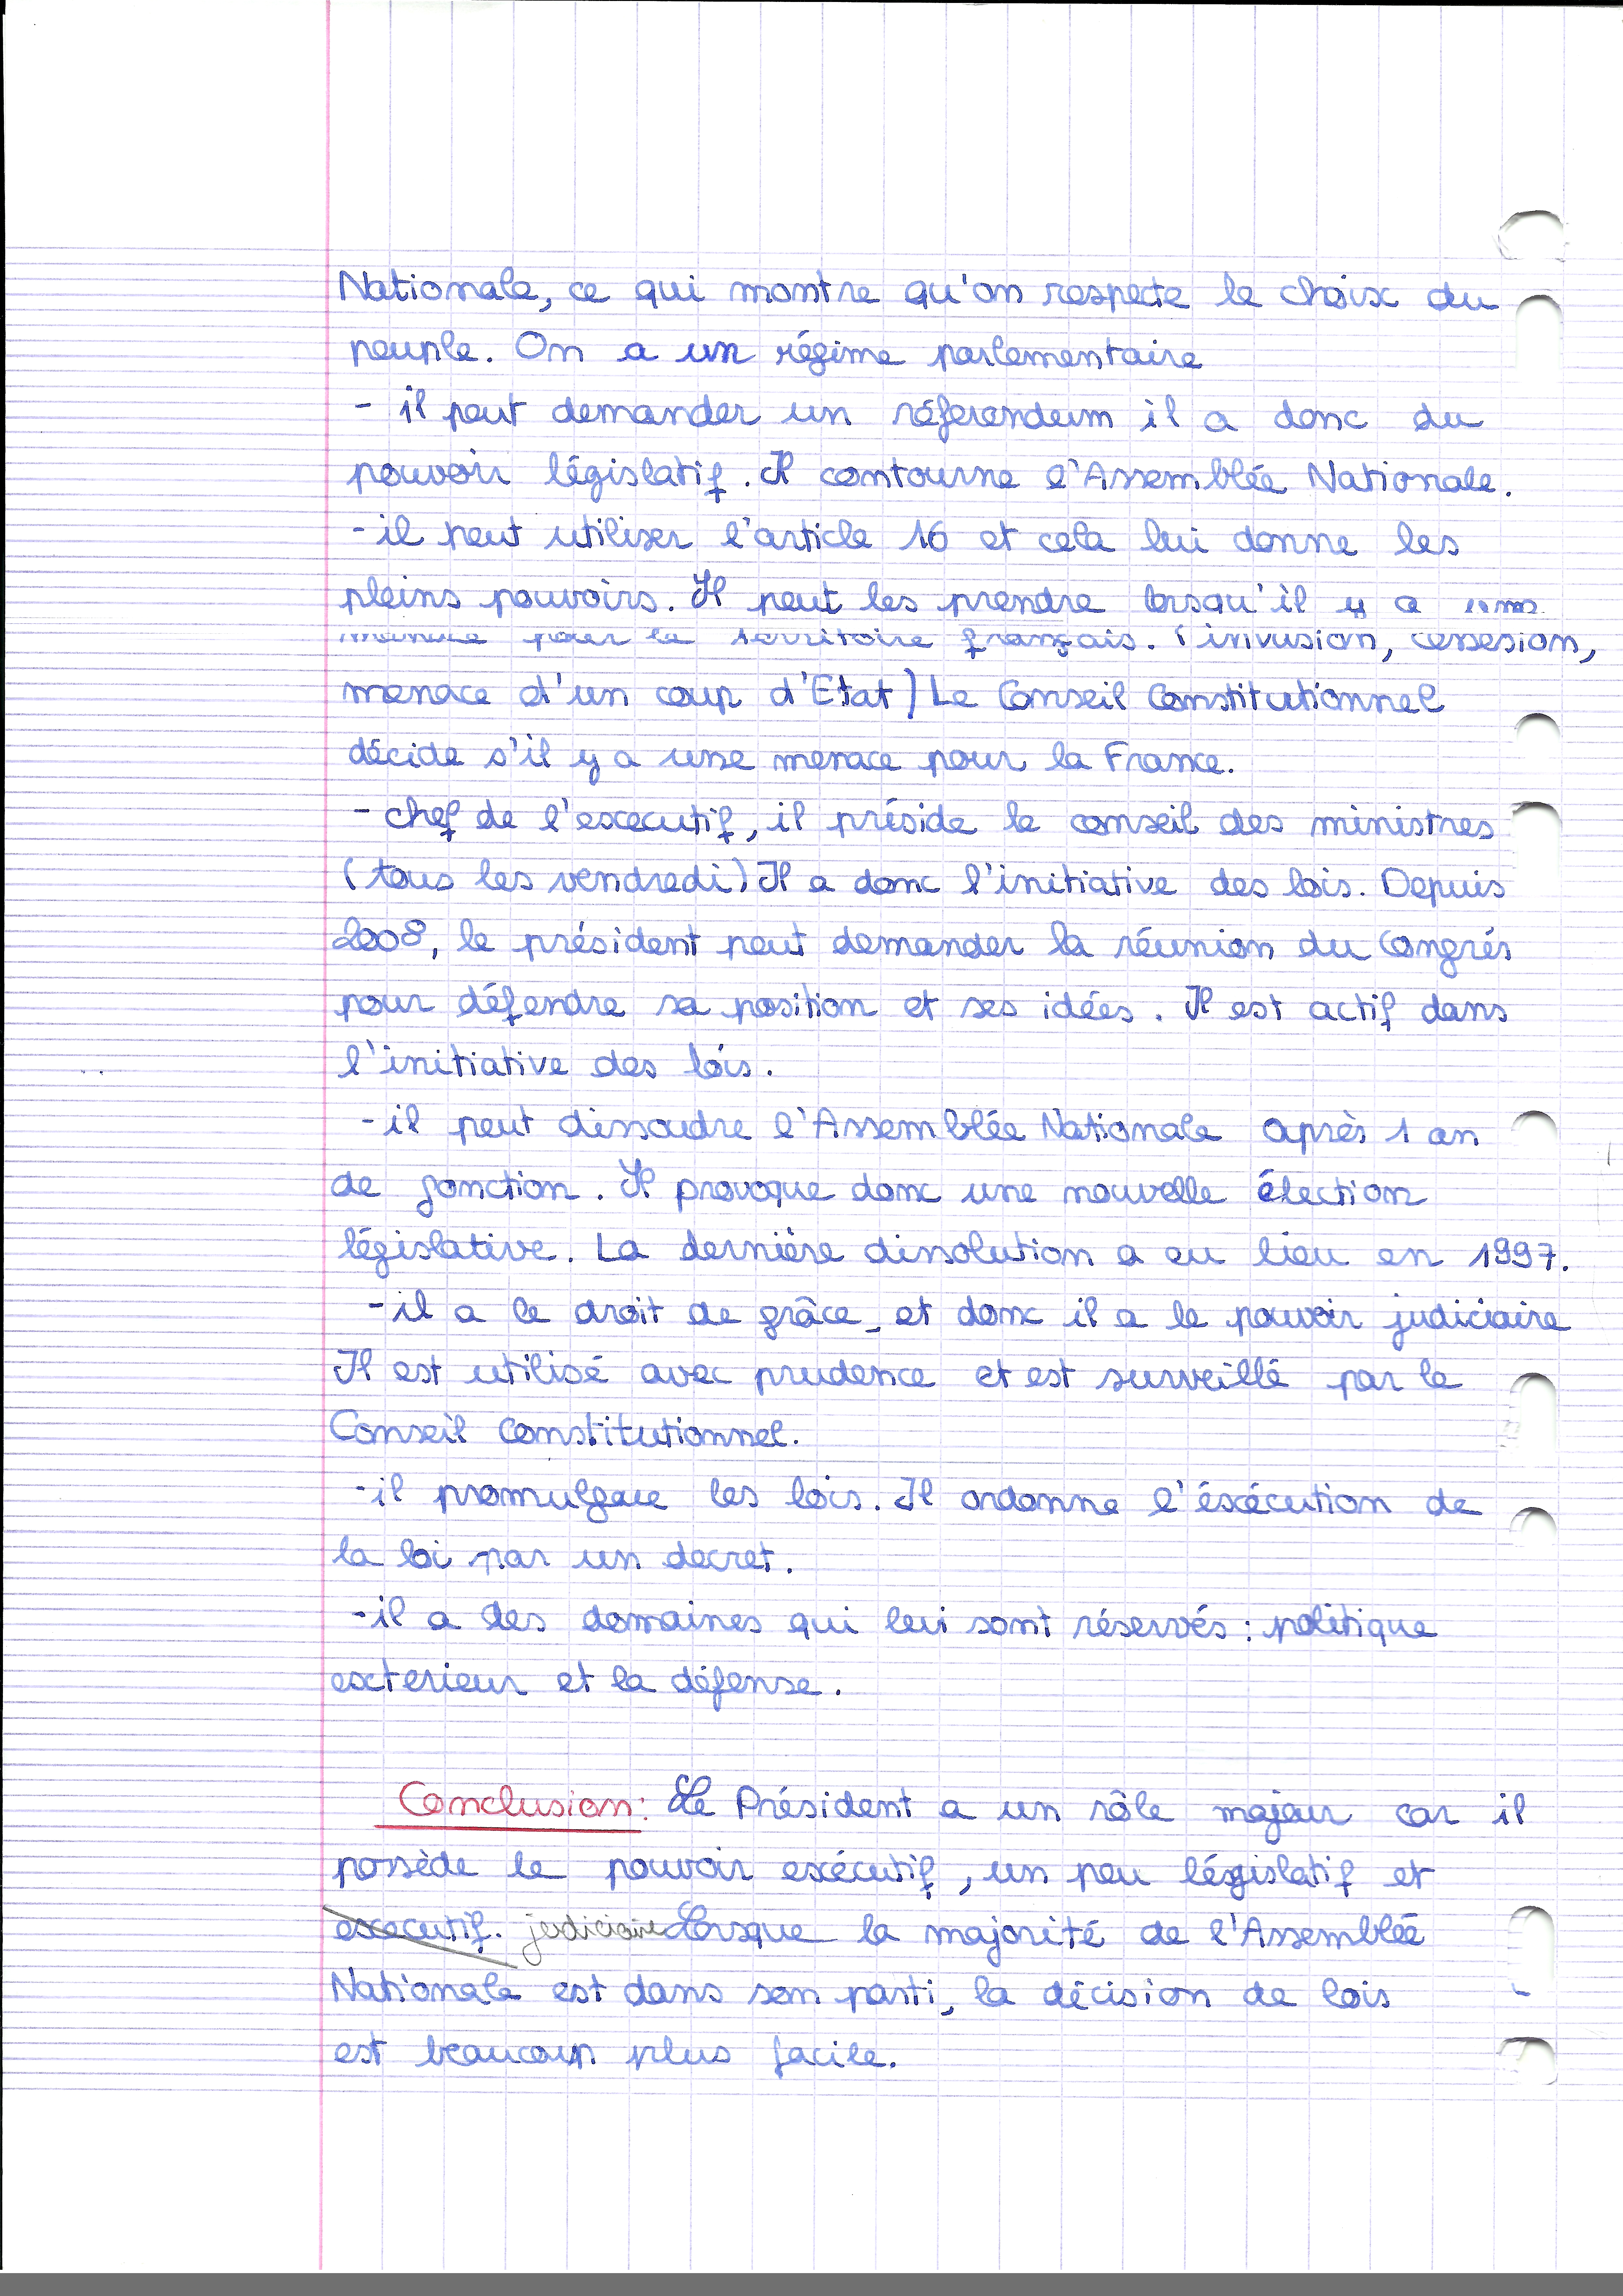 Nationale, ce qui montre qu'on respecte le choix du
peuple. On a un régime parlementaire
- il peut demander un réferendum il a donc du
pouvoir législatif. Il contourne l'Assemblée Nationale.
- il peut utiliser l'article 16 et cela lui donne les
pleins pouvoirs. Il peut les prendre lorsqu'il y a
pour le territoire français. (invusion, cessesion,
menace d'un coup d'Etat) Le Conseil Constitutionnel
décide s'il y a une menace pour la France.
- chef de l'executif, il préside le conseil des ministres
(tous les vendredi) Il a donc l'initiative des lois. Depuis
2008, le président peut demander la réunion du Congrés
pour défendre sa position et ses idées. Il est actif dans
l'initiative des lois.
- il peut dissoudre l'Assemblée Nationale après 1 an
de fonction. Il provoque donc une nouvelle élection
législative. La dernière dissolution a eu lieu en 1997.
- il a le droit de grâce, et donc il a le pouvoir judiciaire
Il est utilisé avec prudence et est surveillé par le
Conseil Constitutionnel.
- il promulgue les lois. Il ordonne l'éxécution de
la loi par un decret.
- il a des domaines qui lui sont réservés : politique
exterieur et la défense.
Conclusion: Le Président a un rôle majeur car il
possède le pouvoir exécutif, un peu législatif et
executif. judiciaire Lorsque la majorité de l'Assemblée
Nationale est dans son parti, la décision de lois
est beaucoup plus facile.